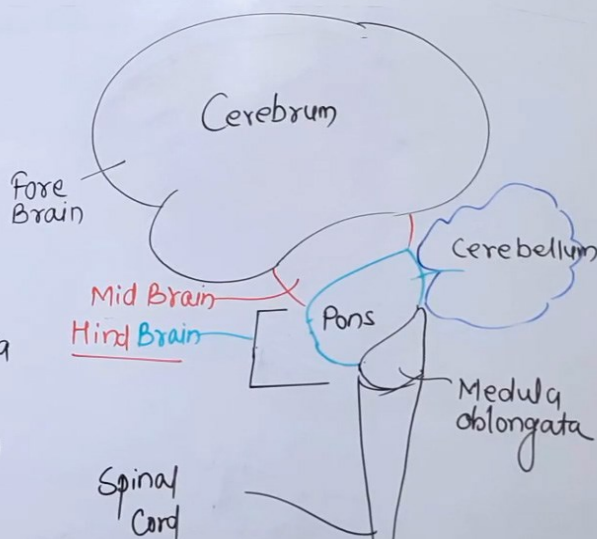 Cerebrum
Fore
Brain
Cerebellum
Mid Brain
Pons
Hind Brain
Medula
oblongata
Spinal
Cord